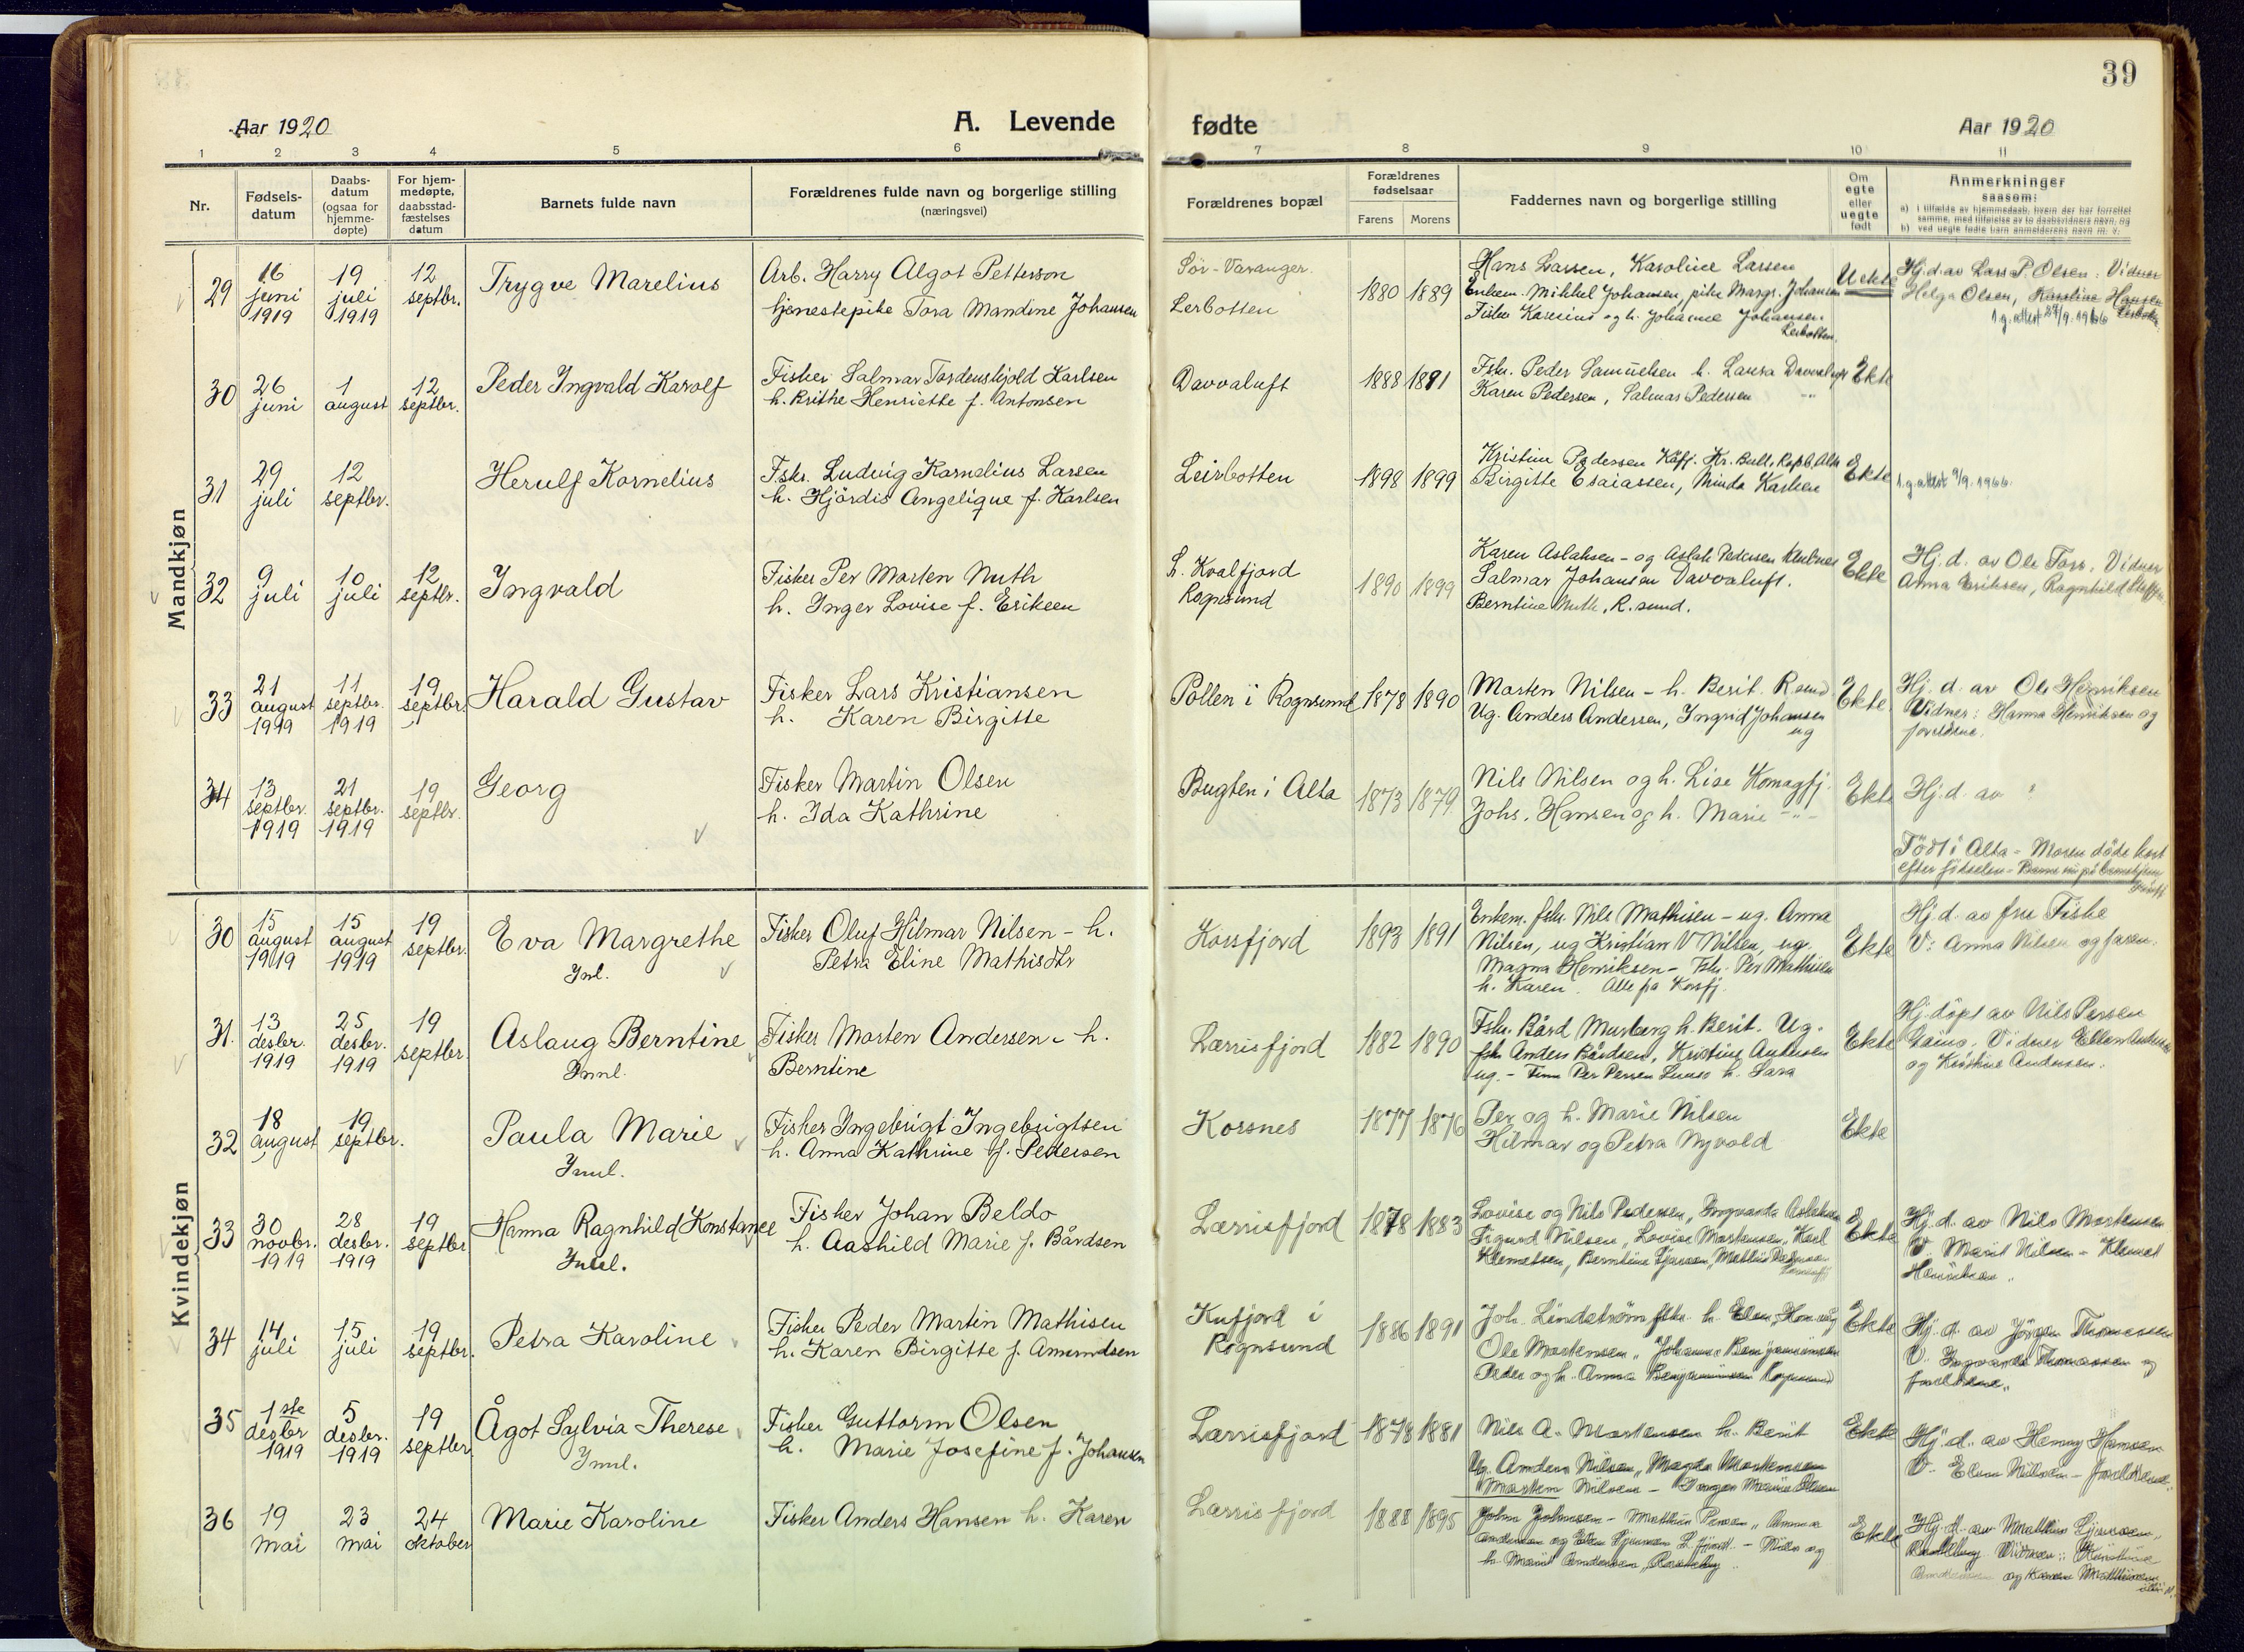 39
Aar 1920
A. Levende fødte
Aar 1920
1 2 3 4 5 6 7 8 9 10 11
Nr.
Fødsels-
datum
Daabs-
datum
(ogsaa for
hjemme-
døpte)
For hjem-
medøpte,
daabsstad-
fæstelses
datum
Barnets fulde navn
Forældrenes fulde navn og borgerlige stilling
(næringsvei)
Forældrenes bopæl
Forældrenes
fødselsaar
Farens Morens
Faddernes navn og borgerlige stilling
Om
egte
eller
uegte
født
Anmerkninger
saasom:
a) i tilfælde av hjemmedaab, hvem der har forrettet
samme, med tilføielse av to daabsvidners navn, og
b) ved uegte fødte barn anmelderens navn m. v.
Mandkjøn
29
16
juni
1919
19
juli
1919
12
septbr.
Trygve Marelius
Arb. Harry Algot Petterson
tjenestepike Tora Mandine Johansen
Sør-Varanger
Lerbotten
1880 1889
Hans Larsen, Karoline Larsen
Enkem. Mikkel Johansen, pike Margr. Johansen
Fisker Karesius og h. Johanne Johansen
Lerbotten
Uekte
Hj. d. av Lars P. Olsen. Vidner
Helga Olsen, Karoline Hansen
30
26
juni
1
august
12
septbr.
Peder Ingvald Karolf
Fisker Salmar Tordenskjold Karlsen
h. Brithe Henriette f. Antonsen
Davvaluft
1888 1891
Fsk. Peder Samuelsen h. Laura Davvaluft
Karen Pedersen, Salmas Pedersen
Ekte
31
29
juli
12
septbr.
Herulf Kornelius
Fsk. Ludvig Kornelius Larsen
h. Hjördis Angelique f. Karlsen
Leirbotten
1898 1899
Kristine Pedersen
Birgitte Esaiassen, Minda Karlsen
Ekte
1.g. attest 9/9. 1966.
32
9
juli
10
juli
12
septbr.
Ingvald
Fisker Per Morten Muth
h. Inger Lovise f. Eriksen
L. Kvalfjord
Rognsund
1890 1899
Karen Aslaksen - og Aslak Pedersen
Salmar Johansen Davvaluft.
Berntine Muth, R.sund.
Ekte
Hj. d. av Ole Tors. Vidner
Anna Eriksen, Ragnhild
33
21
august
1919
11
septbr.
1919
19
septbr.
Harald Gustav
Fisker Lars Kristiansen
h. Karen Birgitte
Pollen i Rognsund
1878 1890
Morten Nilsen - h. Berit. R.sund
Ug. Anders Andersen, Ingrid Johansen
ug
Ekte
Hj. d. av Ole Henriksen
Vidner: Hanna Henriksen og
foreldrene.
34
13
septbr.
1919
21
septbr.
1919
19
septbr.
Georg
Fisker Martin Olsen
h. Ida Kathrine
Bugten i Alta
1873 1879
Nils Nilsen og h. Lise Komagfj.
Johs. Hansen og h. Marie -"-
Ekte
Hj. d. av ?
Född i Alta - Moren döde kort
efter fødselen -
Kvindekjøn
30
15
august
1919
15
august
1919
19
septbr.
Eva Margrethe
Inl.
Fisker Oluf Hilmar Nilsen - h.
Petra Eline Mathisdtr
Korsfjord
1893 1891
Enkem. fsk. Nils Mathisen - ug. Anna
Nilsen, ug Kristian V Nilsen, ug.
Magna Henriksen - Fsk. Per Mathisen
h. Karen. Alle fra Korsfj.
Ekte
Hj. d. av fru Fiske
V: Anna Nilsen og faren.
31.
13
desbr.
1919
25
desbr.
1919
19
septbr.
Aslaug Berntine
Innl.
Fisker Morten Andersen - h.
Berntine
Lærrisfjord
1882 1890
Fsk. Bård Murberg h. Berit. Ug.
fsk Anders Bårdsen, Kristine Andersen
ug. - Finn Per Persen h. Sara
Ekte
Hj. döpt av Nils Persen
Gaino. Vidner Ellen Andersen
og Kristine Andersen.
32
18
august
19
septbr.
Paula Marie
Innl.
Fisker Ingebrigt Ingebrigtsen
h. Anna Kathrine f. Pedersen
Korsnes
1877 1876
Per og h. Marie Nilsen
Hilmar og Petra Nyvold
Ekte
33
30
novbr.
1919
28
desbr.
1919
19
septbr
Hanna Ragnhild Konstance
Innl.
Fisker Johan Beldo
h. Aashild Marie f. Bårdsen
Lærrisfjord
1878 1883
Lovise og Nils Pedersen, Ingvarda Aslaksen
Sigurd Nilsen, Lovise Mortensen, Karl
Klemetsen, Berntine
Ekte
Hj. d. av Nils Mortensen
V. Marit Nilsen - Klemet
Henriksen.
34
14
juli
15
juli
19
septbr.
Petra Karoline
Fisker Peder Martin Mathisen
h. Karen Birgitte f. Amundsen
Kufjord i
Rognsund
1886 1891
Joh. Lindstrøm fsk. h. Elen
Ole Mortensen, Johanna Benjaminsen
Peder og h. Anna Benjaminsen Rognsund
Ekte
Hj. d. av Jörgen Thomassen
V. Ingvarda Thomassen og
foreldrene.
35
1ste
desbr
1919
5
desbr.
1919
19
septbr
Ågot Sylvia Therese
Innl.
Fisker Guttorm Olsen
h. Marie Josefine f. Johansen
Lærrisfjord
1878 1881
Nils A. Mortensen h. Berit
Ug. Anders Nilsen, Magda Mortensen
Morten Nilsen - Inger Marie Olsen
Ekte
Hj. d. av Henry Hansen
V. Elen Nilsen - foreldrene.
36
19
mai
23
mai
24
oktober
Marie Karoline
Fisker Anders Hansen h. Karen
Lærrisfjord
1888 1895
John Johansen - Matthis Persen, Anna
Andersen og L. fjord. - Nils og
h. Marit Andersen,
Ekte
Hj. d. av Matthis
Vidner: Kristine
Andersen og Karen Matthisen